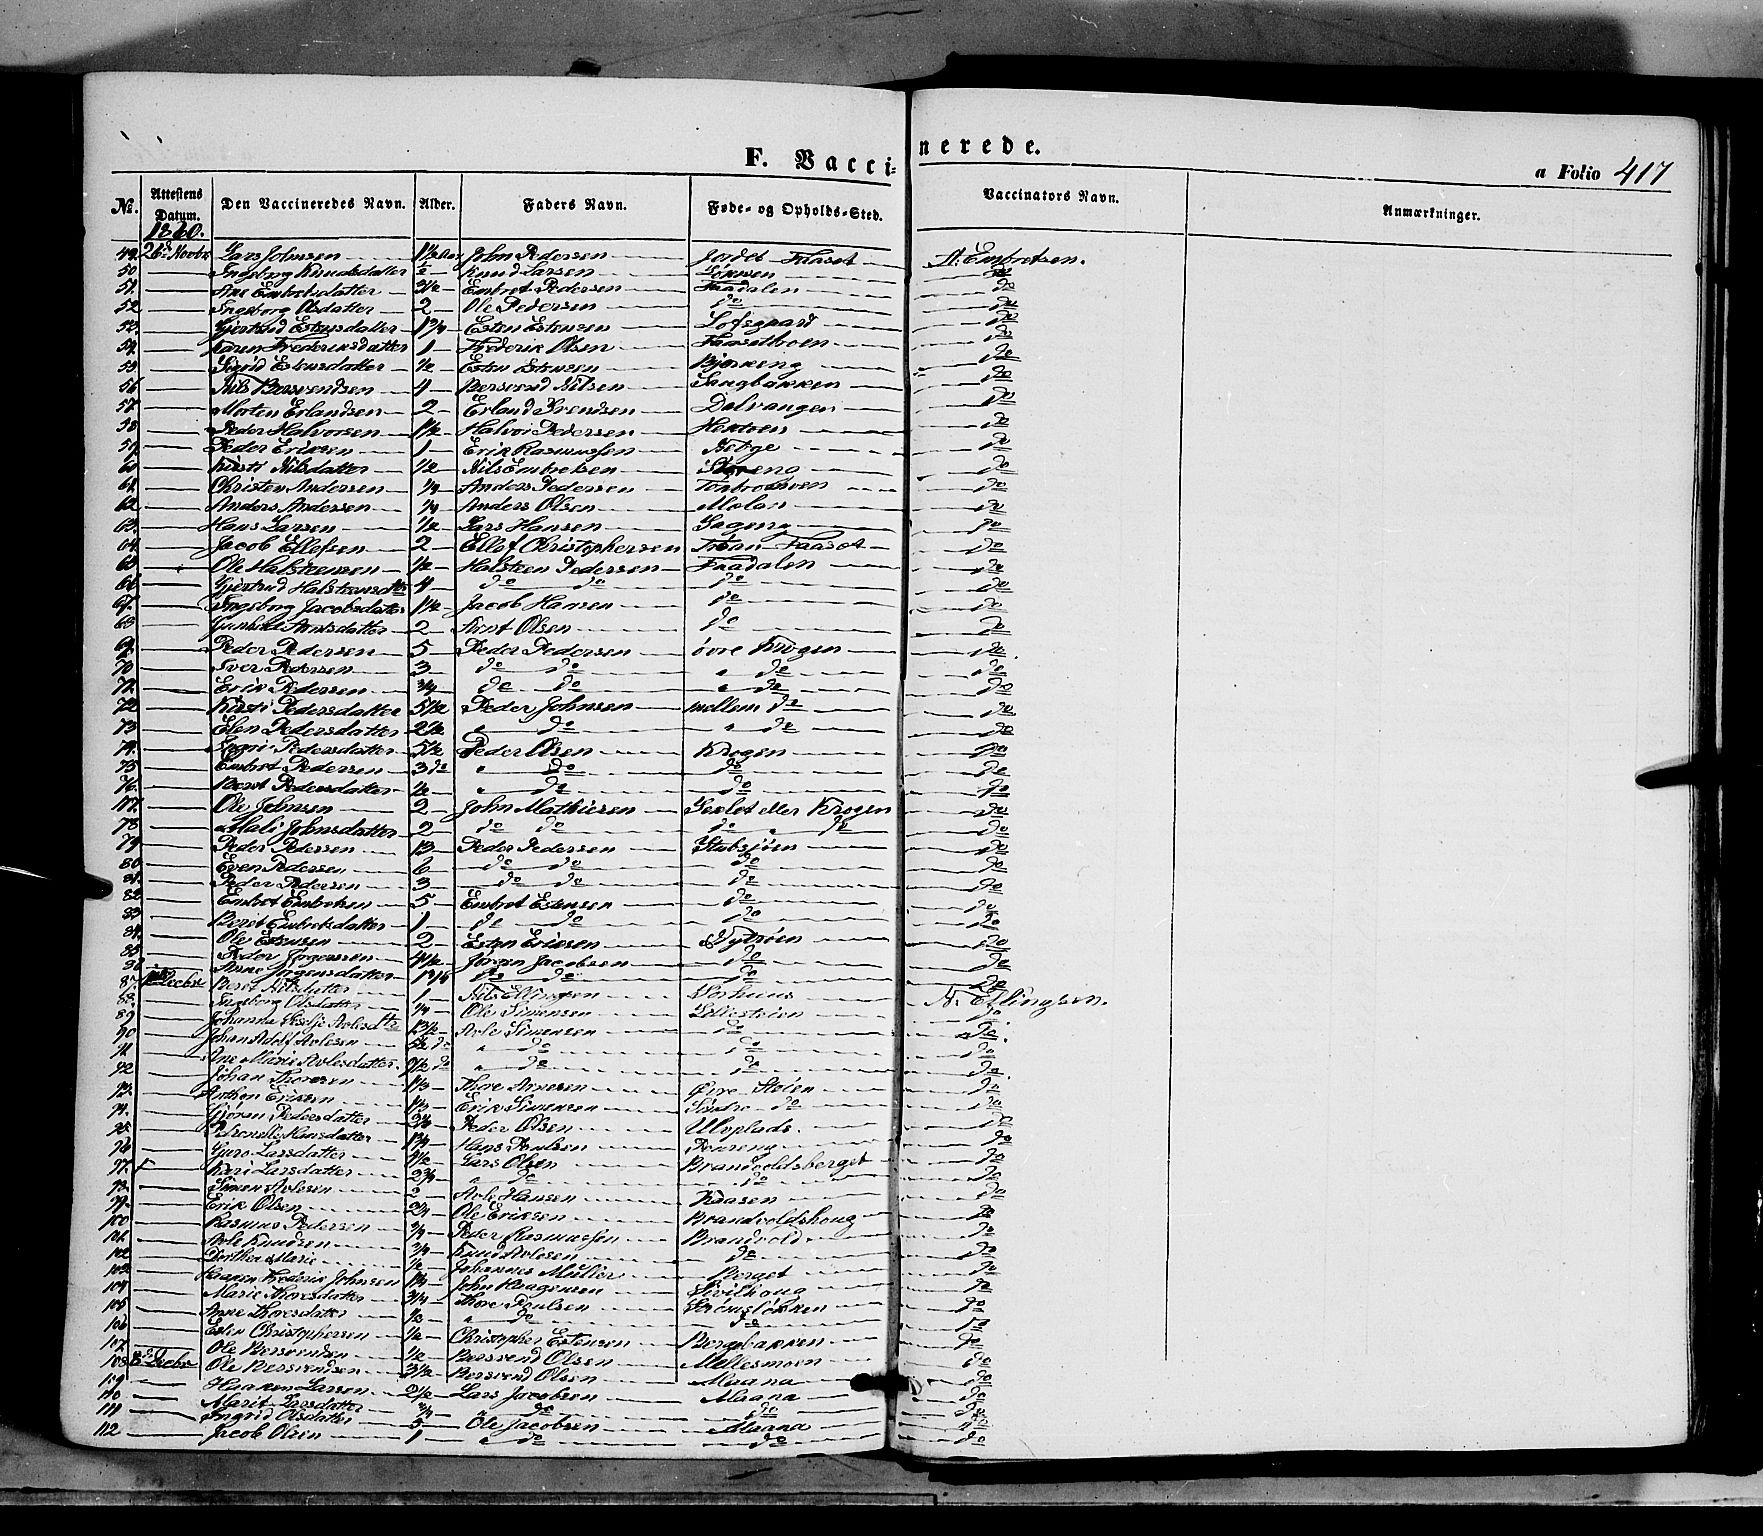 F. Vaccinerede.
a Folio 417
No. Attestens Datum. Den Vaccineredes Navn. Alder. Faders Navn. Føde- og Opholds-Sted. Vaccinators Navn. Anmærkninger.
1860.
49. 26de Novbr Lars Johnsen 1 1/2 Aar John Pedersen Jordet Faaset A. Embretsen.
50 Ingeborg Knudsdatter 1/2 Knud Larsen do
51. Ane Embretsdatter 3 1/2 Embret Pedersen Faadalen do
52 Ingeborg Olsdatter 2 Ole Pedersen do do
53. Gjertrud Estensdatter Esten Estensen Lofsgaard do
54. Karen Frederiksdatter 1 Frederik Olsen Faasetmoen do
55 Sigrid Estensdatter 1/2 Esten Estensen Bjøreng do
56 Nils Bersvendsen 4 Bersvend Nilsen Langbakken do
57. Morten Erlandsen 2 Erland Svendsen Dalvangen do
58 Peder Halvorsen 1 1/2 Halvor Pedersen do
59 Peder Eriksen 1 Erik Rasmussen do
60 Kirsti Nilsdatter 1/2 Nils Embretsen Støreng do
61 Christen Andersen 1/4 Anders Pedersen do
62 Anders Andersen 1/4 Anders Olsen Moian do
63. Hans Larsen 1/2 Lars Hansen Sageng do
64 Jacob Ellefsen 2 Ellef Christophersen Faaset do
65 Ole Halsteensen 1/2 Halsteen Pedersen Faadalen do
66 Gjertrud Halsteensdtr 4 do do do do
67. Ingeborg Jacobsdatter 1 1/2 Jacob Hansen do do
68 Gunhild Arntsdatter 2 Arnt Olsen do do
69 Peder Pedersen 5 Peder Pedersen øvre Krogen do
70 Iver Pedersen 3 do do " do do
71. Erik Pedersen 3/4 do do " do do
72 Kirsti Pedersdatter 5 1/2 Peder Johnsen mellem do do
73 Elen Pedersdatter 2 1/2 " do " do do
74. Ingri Pedersdatter 5 1/2 Peder Olsen Krogen do
75 Embret Pedersen 3 do " do do do
76. Berit Pedersdatter 1/2 " do do do
77. Ole Johnsen 2 John Mathiesen eller Krogen do
78 Mali Johnsdatter 2 do do do " do do
79 Peder Pedersen 13 Peder Pedersen Stubsjøen do
80 Even Pedersen 6 do do do do
81. Peder Pedersen 3 do do do do
82 Embret Embretsen 5 Embret Estensen do do
83 Berit Embretsdatter 1 do do do do
84. Ole Estensen 2 Esten Eriksen Nytrøen do
85. Peder Jørgensen 4 1/2 Jørgen Jacobsen do do
86 Anne Jørgensdatter do do do do
87. Decbr Berit Nilsdatter 1 Nils Ellingsen N. Ellingsen.
88. Ingeborg Olsdatter 1/4 Ole Simensen do
89 Johanna Avlesdtr 13 1/2 Avle Simensen do do
90 Johan Adolf Avlesen 5 1/2 do " do do do
91 Ane Marie Avlesdatter 9 1/2 do " do do do
92 Johan Thoresen 1/3 Thore Arnesen Øvre Støien do
93. Anthon Eriksen 1/3 Erik Simensen Søndre do do
94. Gjøran Pedersdatter Peder Olsen Ulvplads do
95. Petronelle Hansdatter Hans Poulsen do
96 Guro Larsdatter Lars Olsen Brandvoldsberget do
97. Kari Larsdatter " do do do
98 Simen Avlesen 2 Avle Hansen Kaasen do
99. Erik Olsen Ole Eriksen Brandvoldshoug do
100 Rasmus Pedersen 3/4 Peder Rasmussen Brandvold do
101. Avle Knudsen 3/4 Knud Avlesen do do
102 Dorthea Marie 1/2 Johannes Müller Berget do
103 Haagen Frederik Johnsen John Haagensen do
104 Marie Thoresdatter 3/4 Thore Poulsen Strømsløkken do
105 Anne Thoresdatter " do do do
106 Esten Christophersen 1/2 Christopher Estensen Bergebakken do
107. Ole Bersvendsen 1/2 Bersvend Olsen Mellesmoen do
108 8de Decbr Ole Bersvendsen 3 1/2 Bersvend Olsen Maana do
109 Haaken Larsen 2 1/2 Lars Jacobsen Maana do
110 Marit Larsdatter 3/4 " do do do
111 Ingrid Olsdatter 5 Ole Jacobsen Maana do
112 Jacob Olsen 1 " do do do